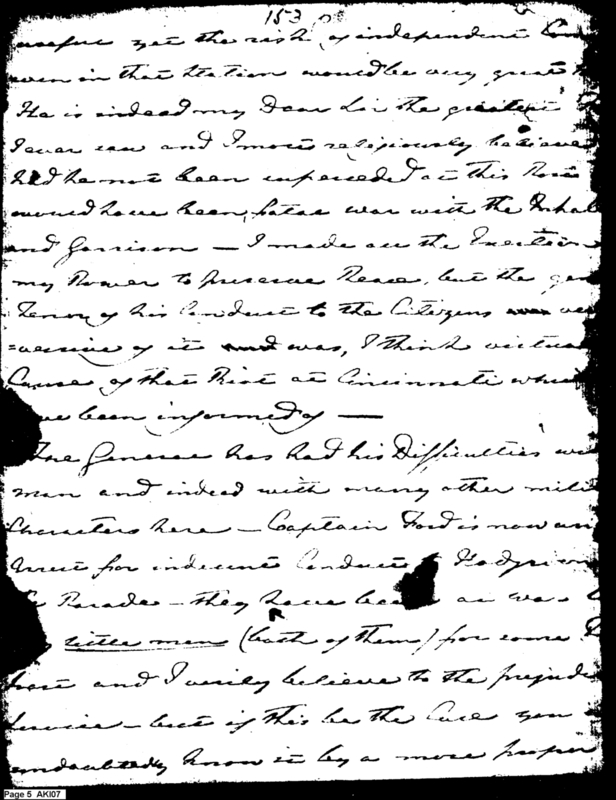 153
useful yet the risk of independent
even in that Station would be very great
He is indeed my Dear Sir the greatest
I ever saw and I most religiously believe
had he not been superceded at this Post
would have been fatal war with the Inhab
and Garrison — I made all the Exertion
my Power to preserve Peace, but the gen
Tenor of his Conduct to the Citizens
=versive of it was, I think virtual
Cause of that Riot at Cincinnati which
been informed of —
The General has had his Difficulties
man and indeed with many other mili
Characters here — Captain Ford is now un
Arrest for indecent Conduct
Parade — they have been at war
little men (both of them) for some
past and I verily believe to the prejud
Service — but if this be the Case you
undoubtedly know it by a more proper
Page 5 AKI07